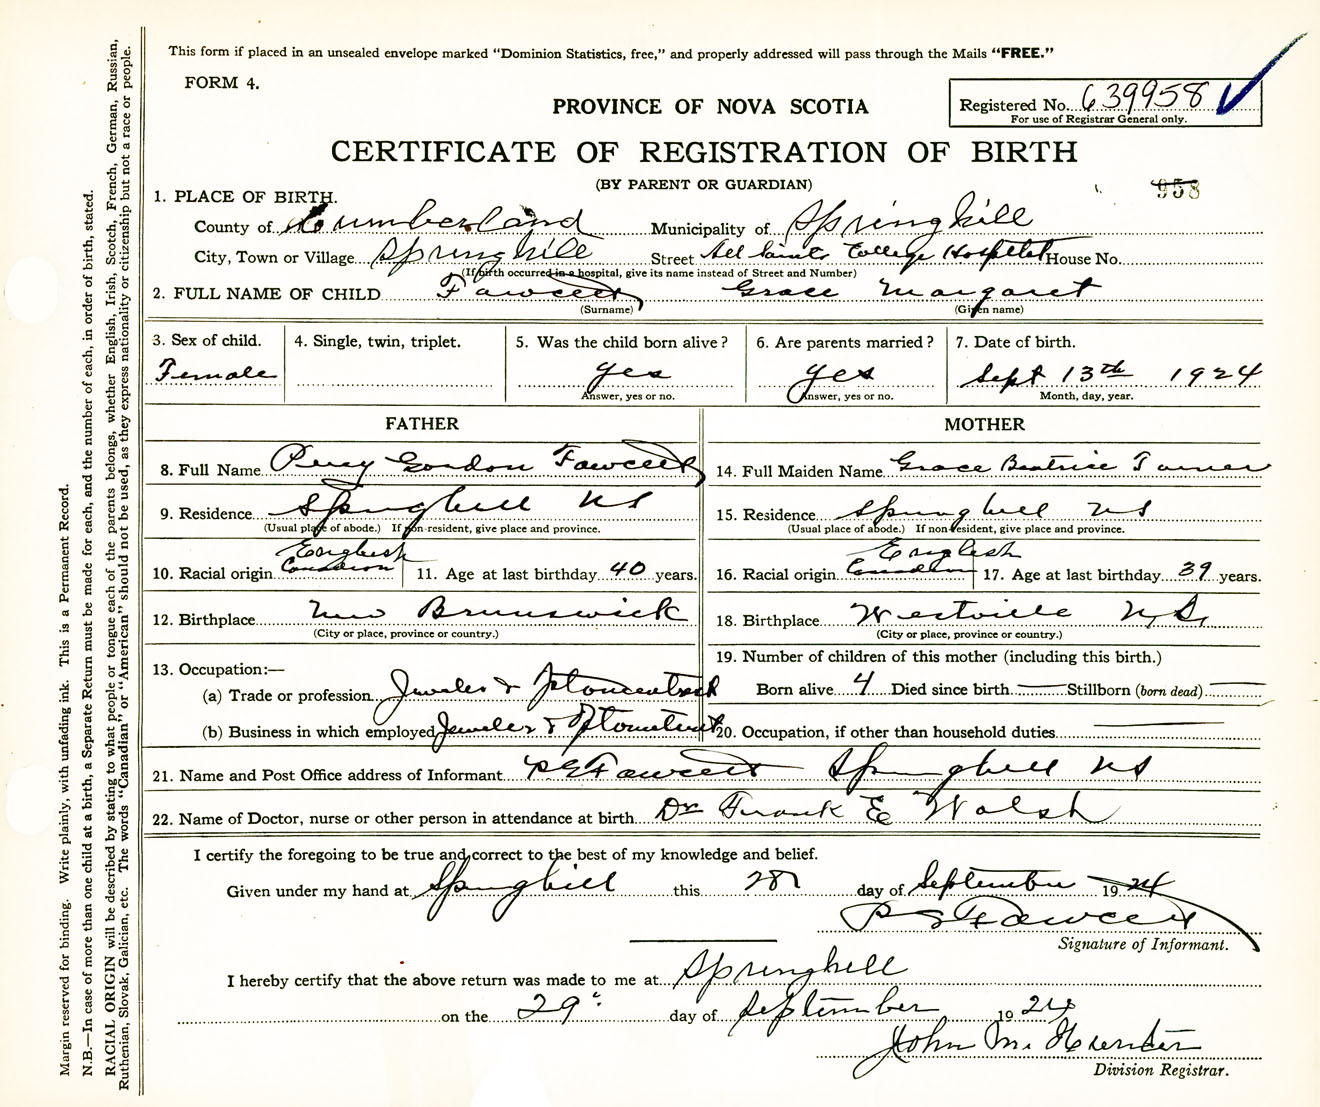 This form if placed in an unsealed envelope marked “Dominion Statistics, free,” and properly addressed will pass through the Mails “FREE.”
FORM 4.
PROVINCE OF NOVA SCOTIA
Registered No. 639958
For use of Registrar General only.
CERTIFICATE OF REGISTRATION OF BIRTH
(BY PARENT OR GUARDIAN)
958
1. PLACE OF BIRTH.
County of Cumberland Municipality of Springhill
City, Town or Village Springhill Street All Saints College Hospital House No.
(If birth occurred in a hospital, give its name instead of Street and Number)
2. FULL NAME OF CHILD Fawcett Grace Margaret
(Surname) (Given name)
3. Sex of child. 4. Single, twin, triplet. 5. Was the child born alive? 6. Are parents married? 7. Date of birth.
Female yes yes Sept 13th 1924
Answer, yes or no. Answer, yes or no. Month, day, year.
FATHER MOTHER
8. Full Name Percy Gordon Fawcett 14. Full Maiden Name Grace Beatrice Turner
9. Residence Springhill NS 15. Residence Springhill NS
(Usual place of abode.) If non-resident, give place and province. (Usual place of abode.) If non-resident, give place and province.
English English
10. Racial origin Canadian 11. Age at last birthday 40 years. 16. Racial origin Canadian 17. Age at last birthday 39 years.
12. Birthplace New Brunswick 18. Birthplace Westville N.S.
(City or place, province or country.) (City or place, province or country.)
13. Occupation:— 19. Number of children of this mother (including this birth.)
(a) Trade or profession Jeweler & Born alive 4 Died since birth — Stillborn (born dead) —
(b) Business in which employed Jeweler & 20. Occupation, if other than household duties —
21. Name and Post Office address of Informant P G Fawcett Springhill NS
22. Name of Doctor, nurse or other person in attendance at birth Dr Frank E Walsh
I certify the foregoing to be true and correct to the best of my knowledge and belief.
Given under my hand at Springhill this 28 day of September 1924
P G Fawcett
Signature of Informant.
I hereby certify that the above return was made to me at Springhill
on the 29 day of September 1924
John M. Hunter
Division Registrar.
Margin reserved for binding. Write plainly, with unfading ink. This is a Permanent Record.
N.B.—In case of more than one child at a birth, a Separate Return must be made for each, and the number of each, in order of birth, stated.
RACIAL ORIGIN will be described by stating to what people or tongue each of the parents belongs, whether English, Irish, Scotch, French, German, Russian,
Ruthenian, Slovak, Galician, etc. The words “Canadian” or “American” should not be used, as they express nationality or citizenship but not a race or people.